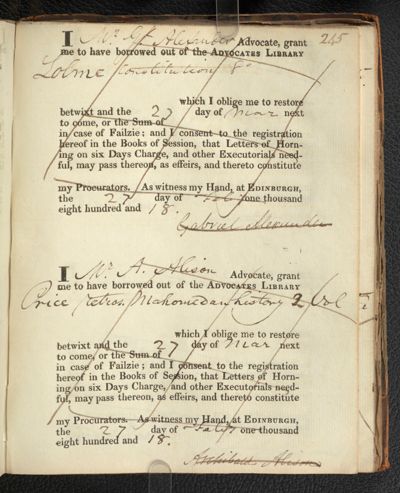 245
I Mr. G. Alexander Advocate, grant
me to have borrowed out of the ADVOCATES LIBRARY
Lolme Constitution 8o
which I oblige me to restore
betwixt and the 27 day of Mar next
to come, or the Sum of
in case of Failzie; and I consent to the registration
hereof in the Books of Session, that Letters of Horn-
ing on six Days Charge, and other Executorials need-
ful, may pass thereon, as effeirs, and thereto constitute
my Procurators. As witness my Hand, at EDINBURGH,
the 27 day of Feby one thousand
eight hundred and 18.
Gabriel Alexander
I Mr. A. Alison Advocate, grant
me to have borrowed out of the ADVOCATES LIBRARY
Price Mahomedan history 2 Vol
which I oblige me to restore
betwixt and the 27 day of Mar next
to come, or the Sum of
in case of Failzie; and I consent to the registration
hereof in the Books of Session, that Letters of Horn-
ing on six Days Charge, and other Executorials need-
ful, may pass thereon, as effeirs, and thereto constitute
my Procurators. As witness my Hand, at EDINBURGH,
the 27 day of Feby one thousand
eight hundred and 18.
Archibald Alison